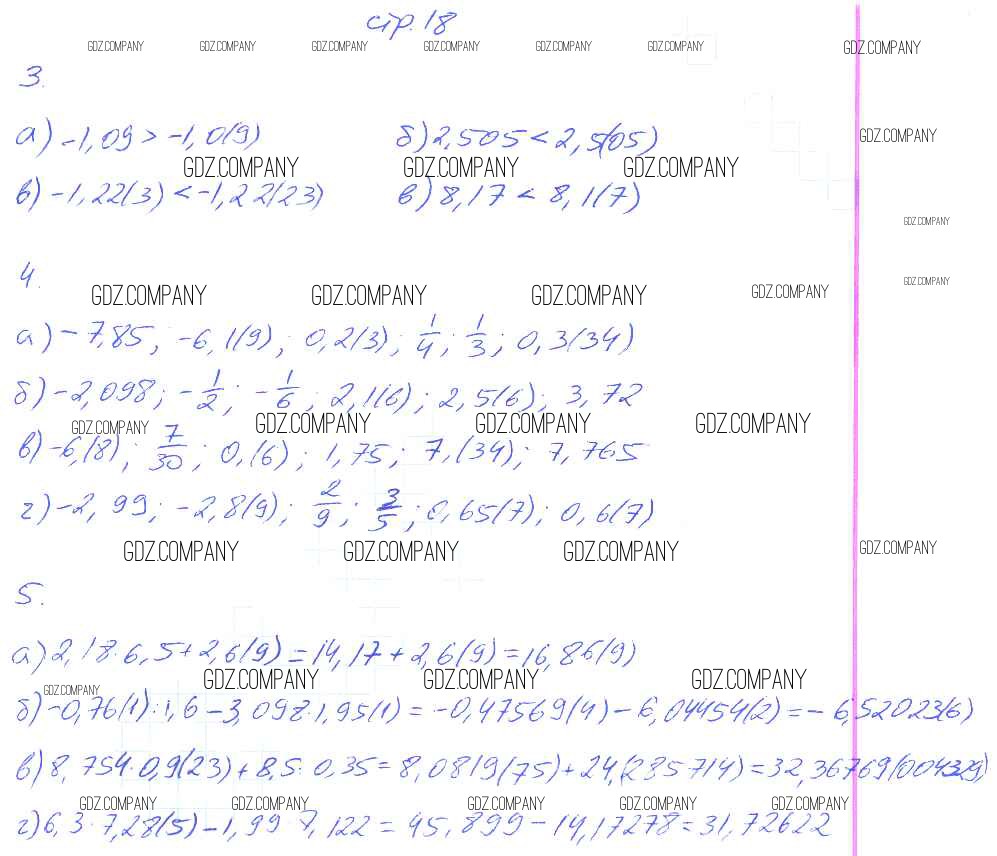 стр. 18
GDZ.COMPANY GDZ.COMPANY GDZ.COMPANY GDZ.COMPANY GDZ.COMPANY GDZ.COMPANY GDZ.COMPANY
3.
а) -1,09 > -1,0(9) б) 2,505 < 2,5(05) GDZ.COMPANY
GDZ.COMPANY GDZ.COMPANY GDZ.COMPANY
в) -1,22(3) < -1,22(23) в) 8,17 < 8,1(7)
GDZ.COMPANY
4.
GDZ.COMPANY
GDZ.COMPANY GDZ.COMPANY GDZ.COMPANY GDZ.COMPANY
а) -7,85; -6,1(9); 0,2(3); 1/4; 1/3; 0,3(34)
б) -2,098; -1/2; -1/6; 2,1(6); 2,5(6); 3,72
GDZ.COMPANY GDZ.COMPANY GDZ.COMPANY GDZ.COMPANY
в) -6,(8); 7/30; 0,(6); 1,75; 7,(34); 7,765
г) -2,99; -2,8(9); 2/9; 3/5; 0,65(7); 0,6(7)
GDZ.COMPANY GDZ.COMPANY GDZ.COMPANY GDZ.COMPANY
5.
а) 2,18·6,5+2,6(9) = 14,17+2,6(9) = 16,86(9)
GDZ.COMPANY GDZ.COMPANY GDZ.COMPANY GDZ.COMPANY
б) -0,76(1):1,6-3,098·1,95(1) = -0,47569(4) - 6,04454(2) = -6,52023(6)
в) 8,754·0,9(23)+8,5:0,35 = 8,0819(75)+24,(285714) = 32,36769(004329)
GDZ.COMPANY GDZ.COMPANY GDZ.COMPANY GDZ.COMPANY GDZ.COMPANY
г) 6,3·7,28(5)-1,99·7,122 = 45,899-14,17278 = 31,72622